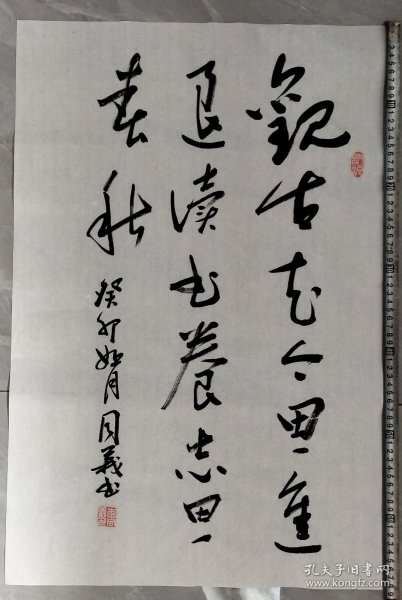 觀古知今思進
退讀书養志思
春秋
癸卯如月同義书
孔夫子旧书网
www.kongfz.com